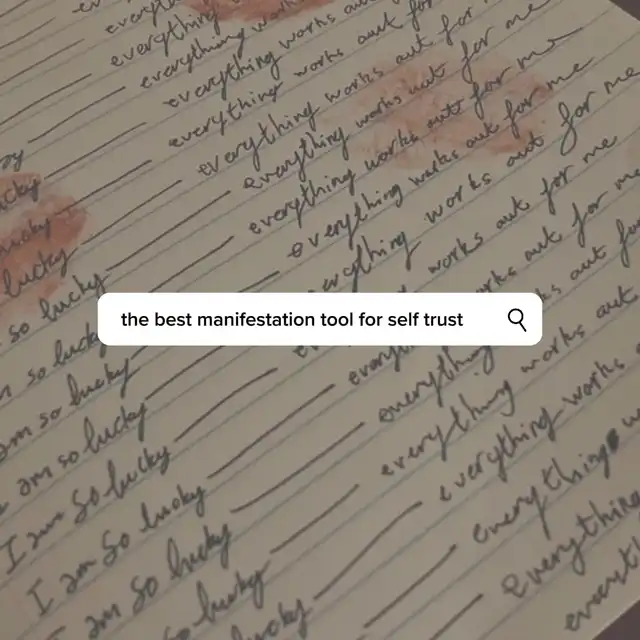 everything
everything works
everything works out
lucky everything works out for
lucky everything works out for me
lucky everything works out for me
so lucky everything works out for me
so lucky everything works out for me
am so lucky works out for me
the best manifestation tool for self trust
am so lucky works out for me
I am so lucky works out for me
I am so lucky everything works out for
am so lucky everything works out
so lucky everything works
lucky everything
Everything